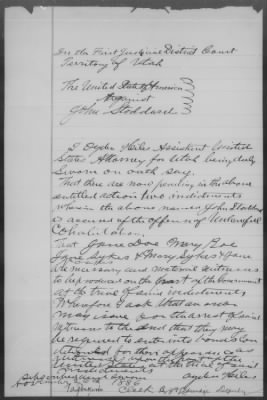 In the First Judicial District Court
Territory of Utah
The United States of America
Against
John Stoddard
I Ogden Hiles Assistant United
States Attorney for Utah being duly
Sworn on oath say.
That there are now pending in the above
entitled action two indictments
wherein the above named John Stoddard
is accused of the offense of Unlawful
Cohabitation.
That Jane Doe Mary Roe
Jane Sykes & Mary Sykes & Jane
are necessary and material witnesses
to be on the part of the Government
at the trial of indictments
Wherefore I ask that an order
may issue for the arrest of said
witnesses to the end that they may
be required to enter into bonds or
for their appearance as
witnesses
United States at the trial of said
indictments
Ogden Hiles
Subscribed and sworn
November 1886
Clerk By Deputy